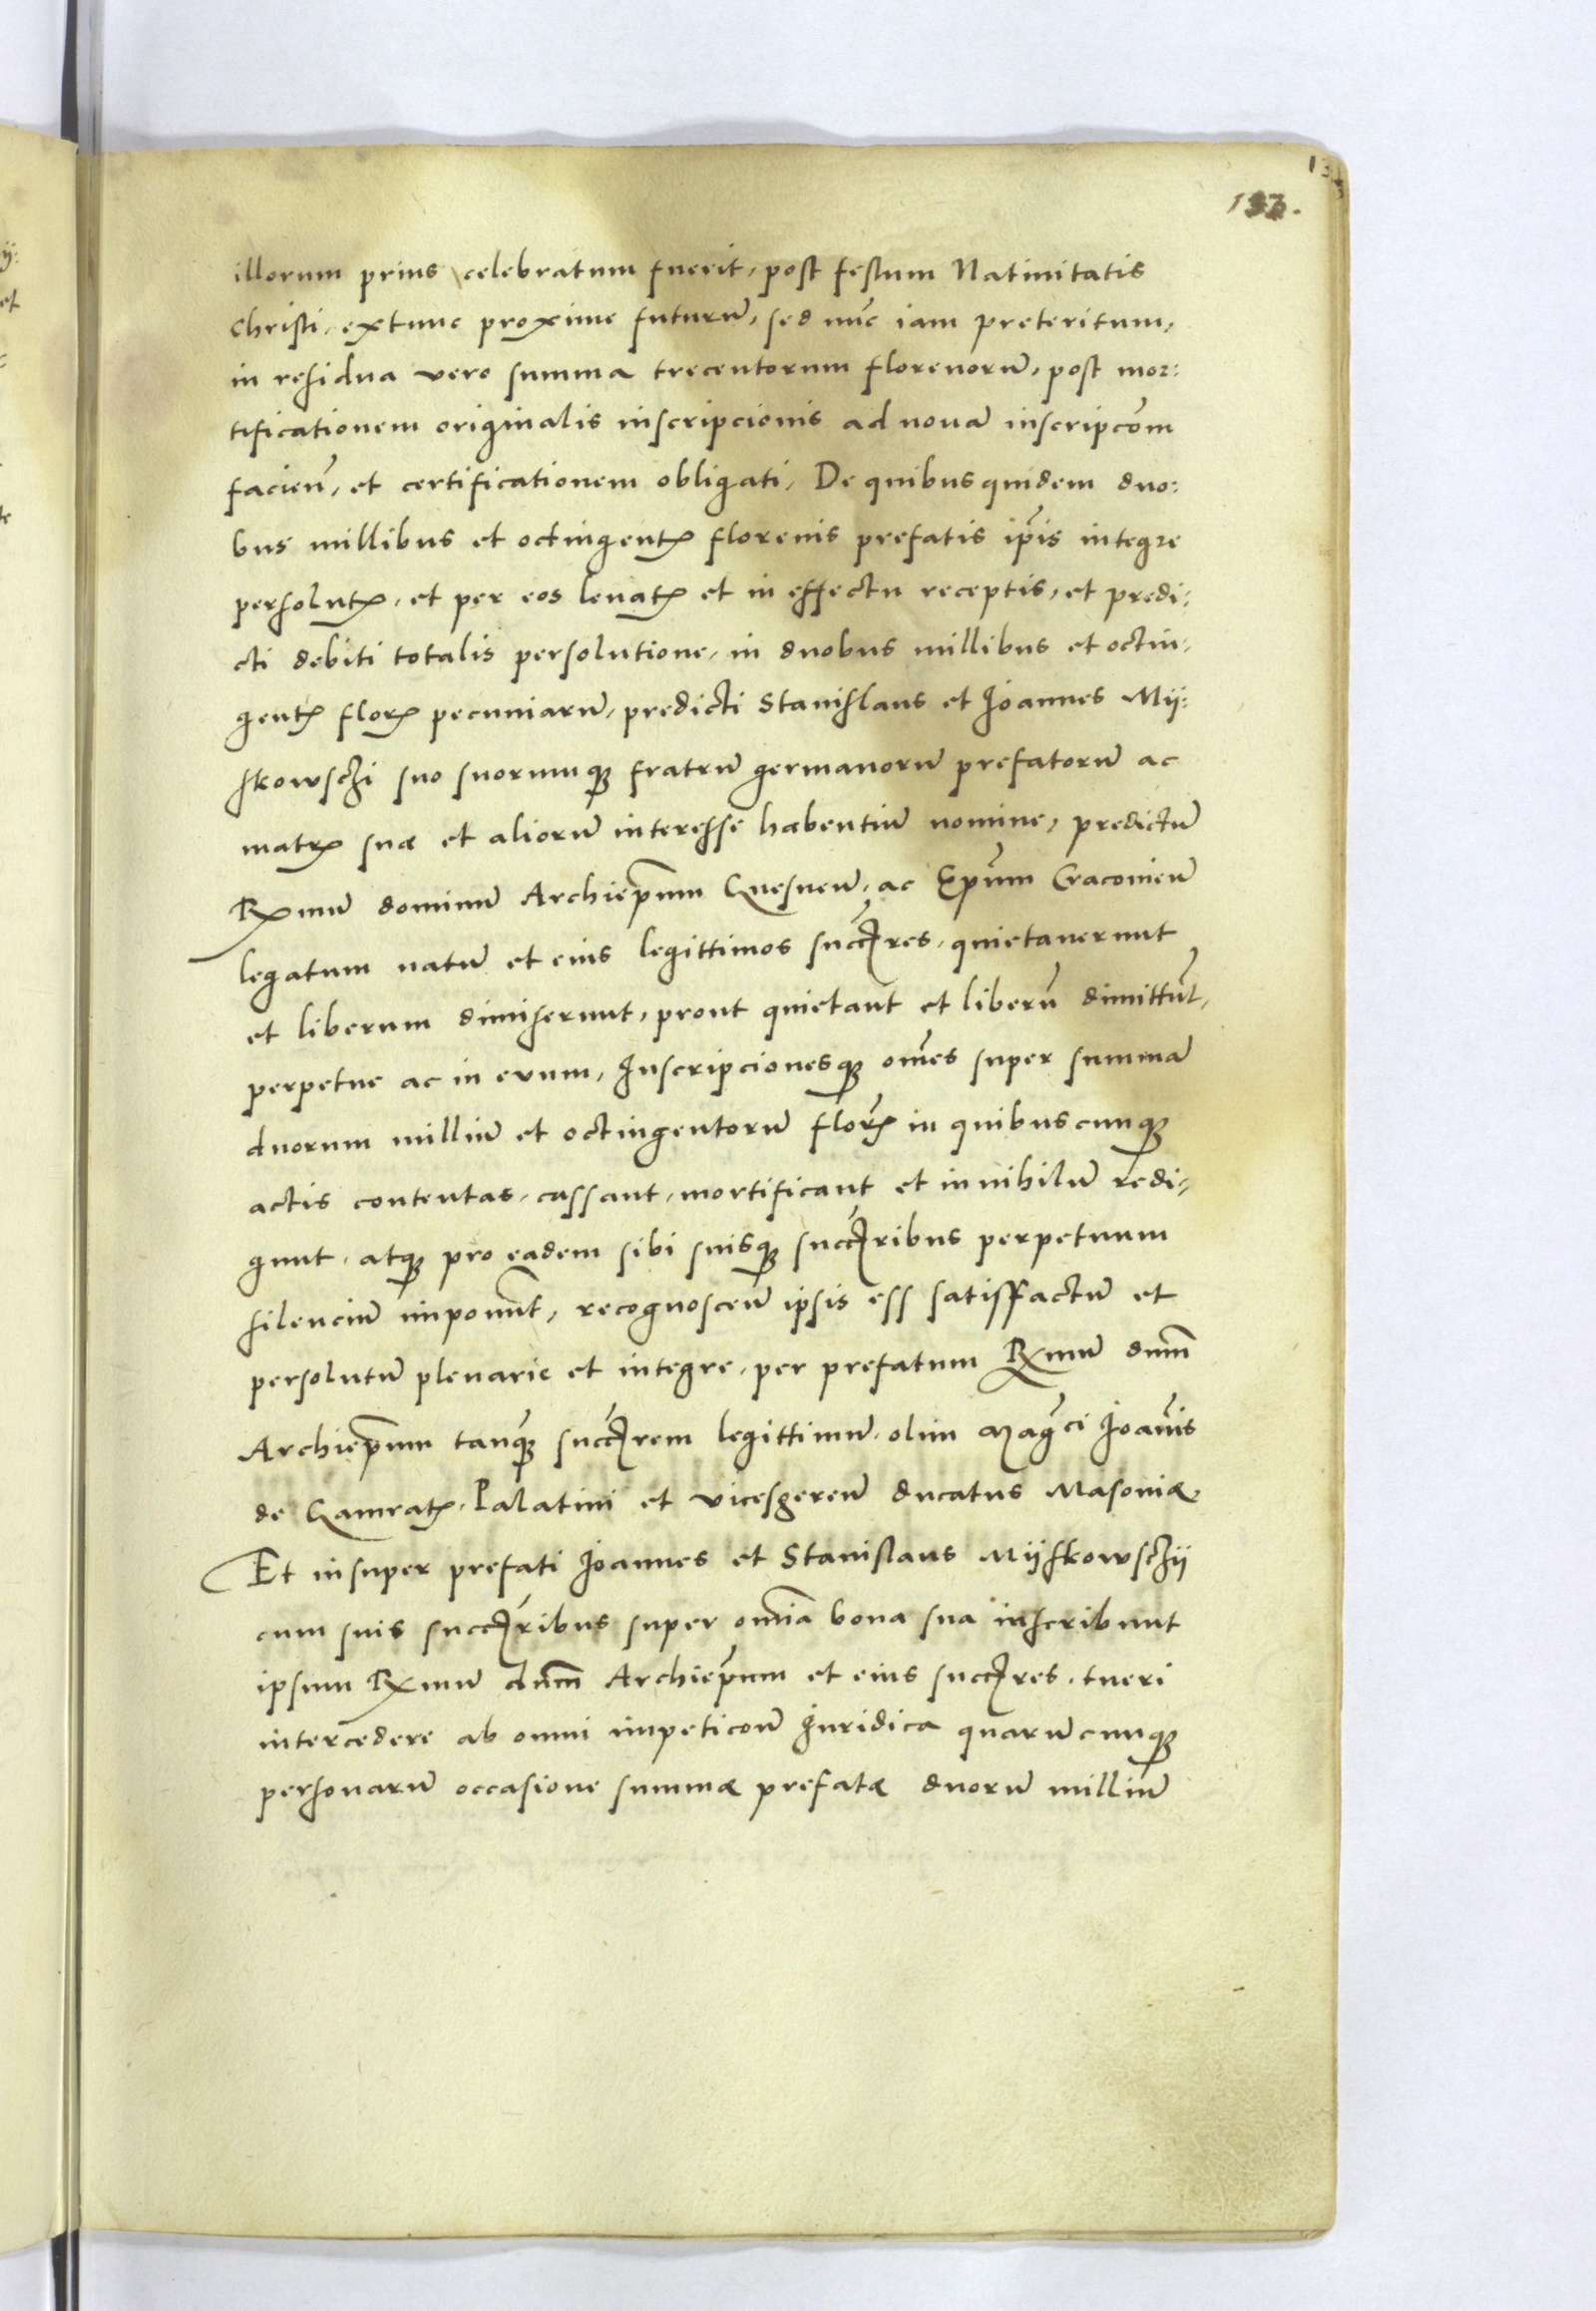 133.
illorum prius celebratum fuerit, post festum Natiuitatis
Christi, extunc proxime futurū, sed nūc iam preteritum,
in residua vero summa trecentorum florenorū, post mor:
tificationem originalis inscripcionis ad nouā inscripcōm
facieñ, et certificationem obligati, De quibus quidem duo:
bus millibus et octingentꝭ florenis prefatis ip̄is integre
persolutꝭ, et per eos leuatꝭ et in effectu receptis, et predi:
cti debiti totalis persolutione, in duobus millibus et octin,
gentꝭ florꝭ pecuniarū, predicti Stanislaus et Ioannes Mij:
skowsczi suo suorumqꝫ fratrū germanorū prefatorū ac
matrꝭ suæ et aliorū interesse habentiū nomine, predictū
Rx̄mū dominū Archiep̄um Gnesneñ, ac Ep̄um Cracouieñ
legatum natū et eius legittimos succ̄res, quietauerunt
et liberum dimiserunt, prout quietant et liberū dimittūt,
perpetue ac in evum, Inscripcionesqꝫ om̄es super summā
duorum milliū et octingentorū florꝭ in quibuscunqꝫ
actis contentas, cassant, mortificant et in nihilū redi,
gunt, atqꝫ pro eadem sibi suisqꝫ succ̄ribus perpetuum
silenciū imponūt, recognosceñ ipsis ess satisffactū et
persolutū plenarie et integre, per prefatum Rx̄mū dnm̄
Archiep̄um tanqꝫ succ̄rem legittimū, olim Mag̃ci Ioañis
de Gamratꝭ, Palatini et vicesgereñ ducatus Masouiæ.
Et insuper prefati Ioannes et Stanislaus Mijskowsczij
cum suis succ̄ribus super om̄ia bona sua inscribunt
ipsum Rx̄mū dnm̄ Archiep̄um et eius succ̄res, tueri
intercedere ab omni impeticoñ Iuridica quarūcunqꝫ
personarū occasione summæ prefatæ duorū milliū